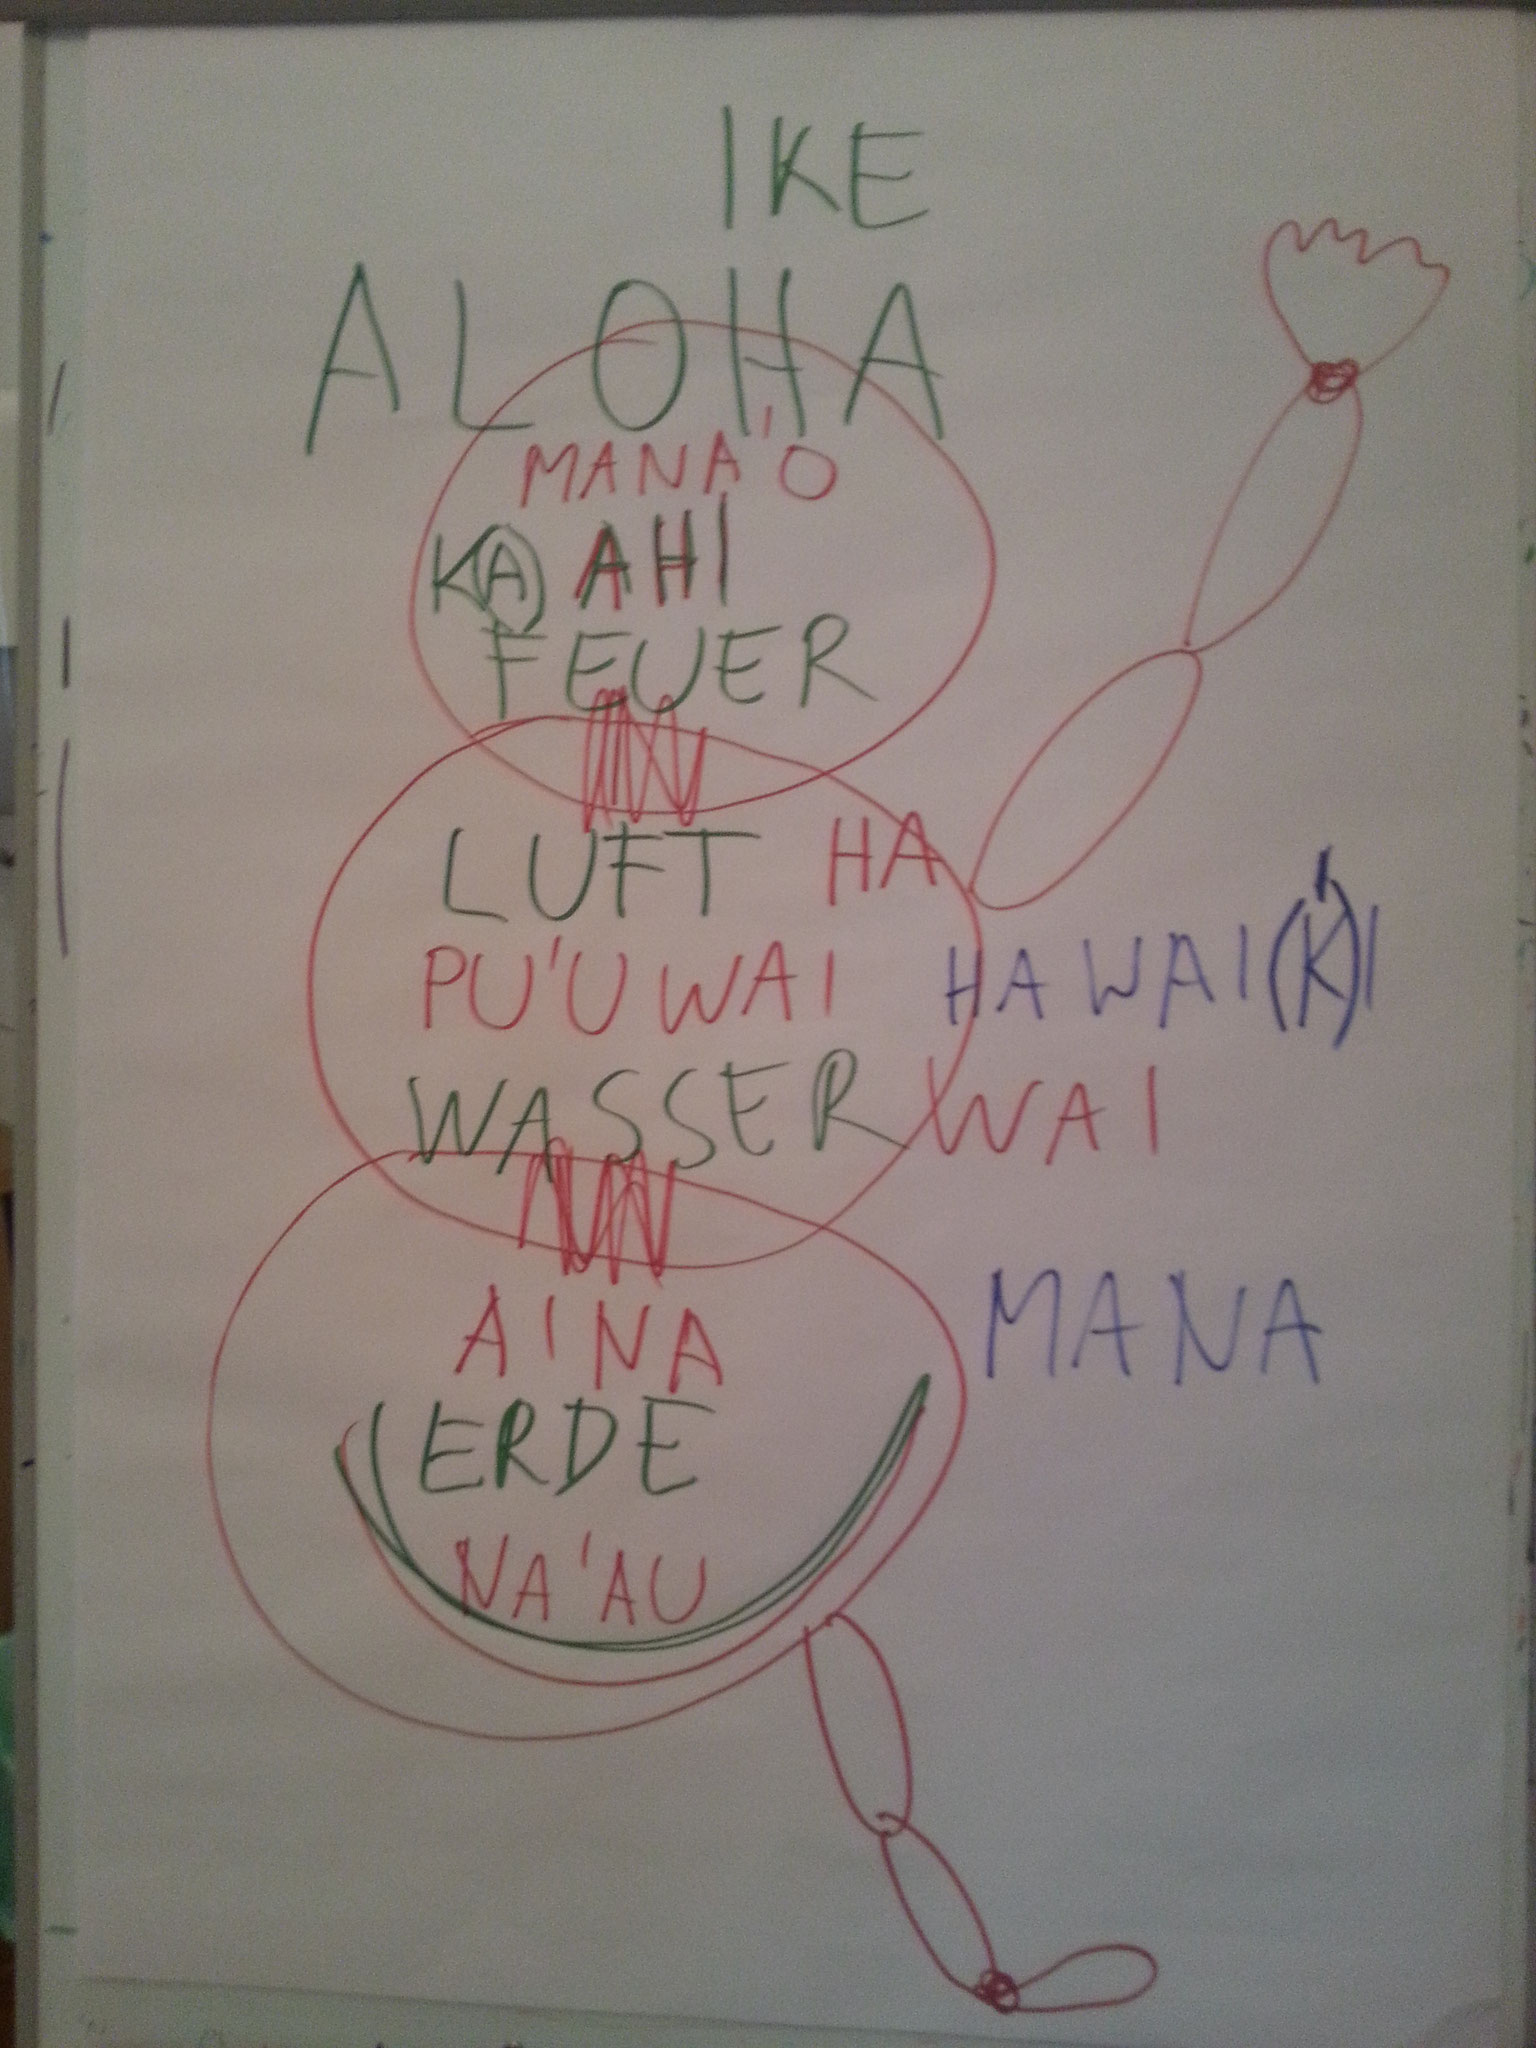 IKE
ALOHA
MANA'O
KA AHI
FEUER
LUFT HA
PU'UWAI HAWAI(K)I
WASSER WAI
AINA MANA
ERDE
NA'AU